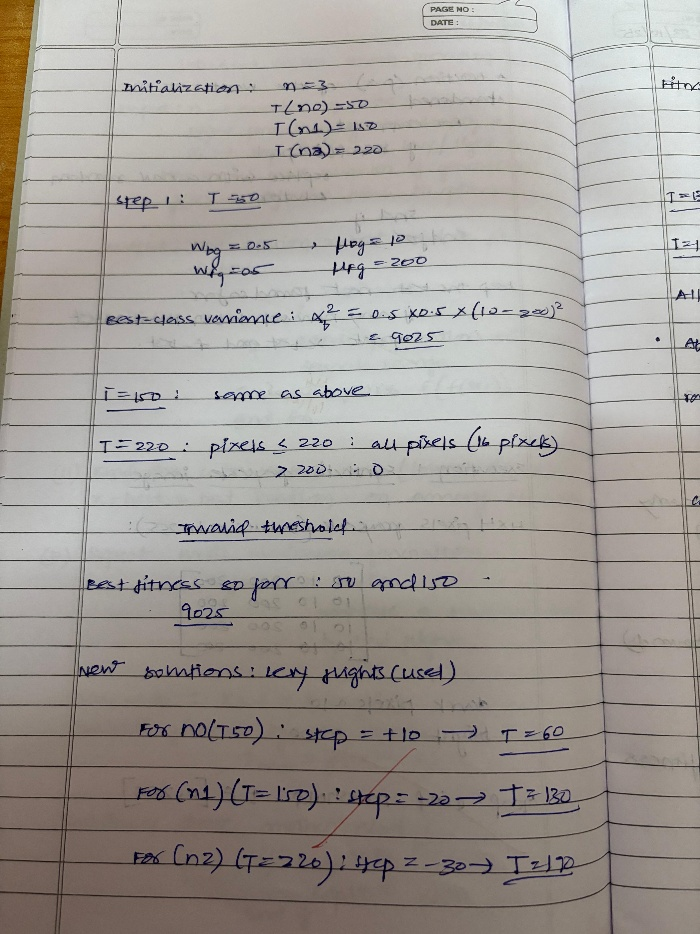 PAGE NO :
DATE :
Initialization : n = 3
T(n0) = 50
T(n1) = 150
T(n2) = 220
step 1 : T = 50
Wbg = 0.5 , μbg = 10
Wfg = 05 μfg = 200
Best-class variance : α²b = 0.5 x 0.5 x (10 - 200)²
= 9025
T = 150 : same as above
T = 220 : pixels ≤ 220 : all pixels (16 pixels)
> 200 : 0
Invalid threshold.
Best fitness so farr : 50 and 150
9025
New solutions : levy flights (used)
For n0(T50) : step = +10 → T = 60
For (n1) (T = 150) : step = -20 → T = 130
For (n2) (T = 220) : step = -30 → T = 190